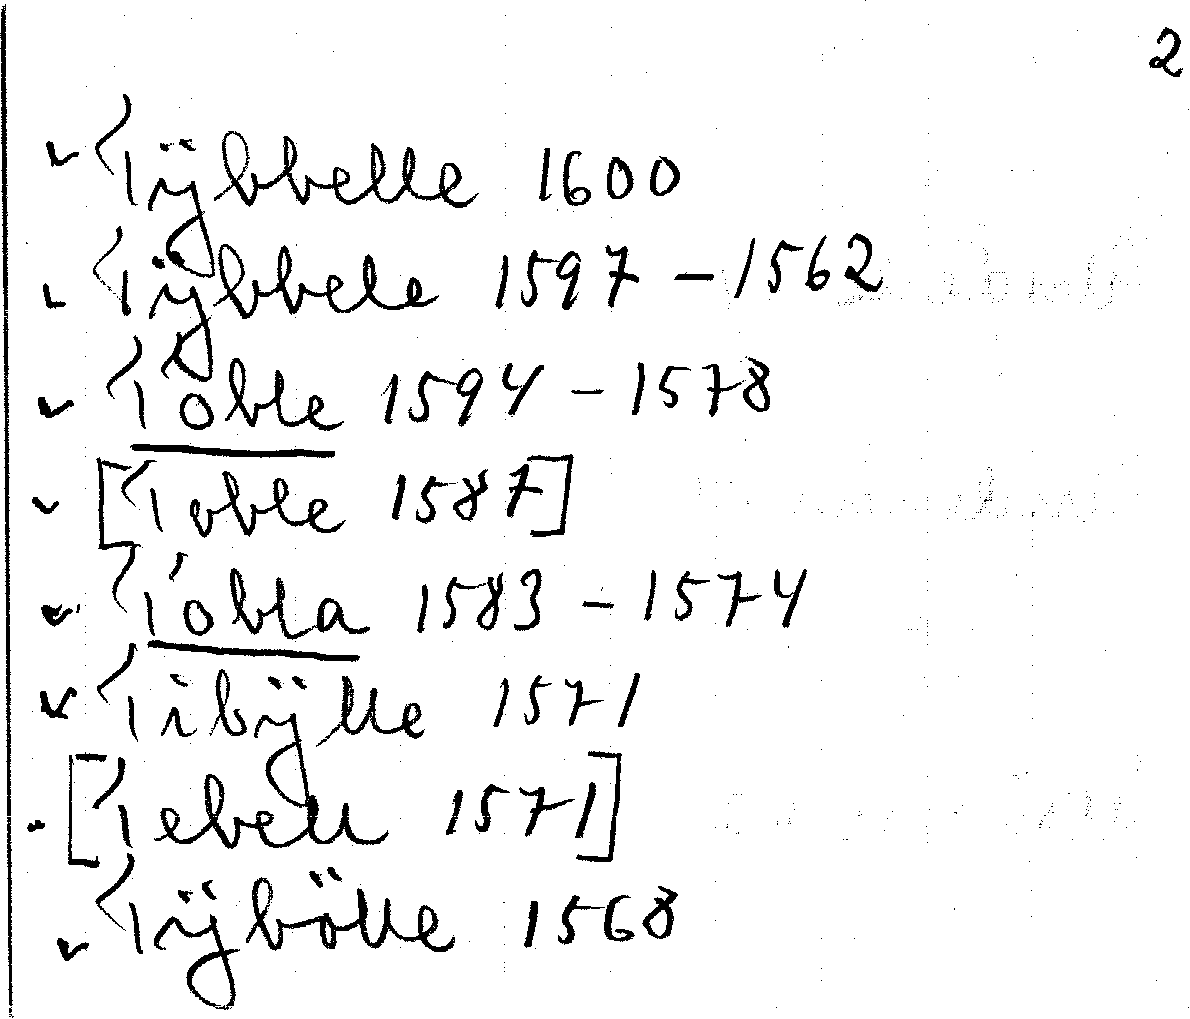 2
Tÿbbelle 1600
Tÿbbele 1597 – 1562
Tóble 1594 – 1578
[Toble 1587]
Tóbla 1583 – 1574
Tibÿlle 1571
[Tebell 1571]
Tÿbölle 1568